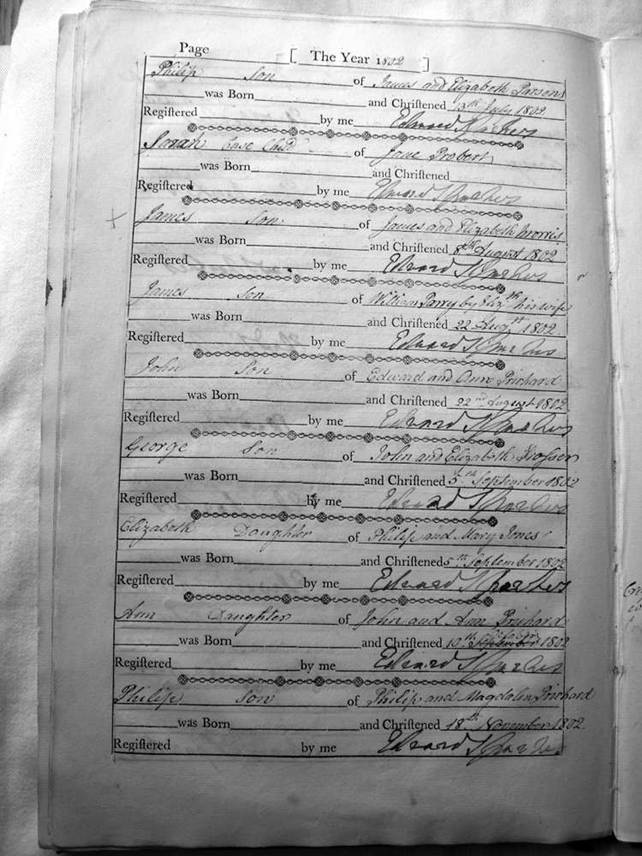 Page [ The Year 1802 ]
Philip Son of James and Elizabeth Parsons
was Born and Christened July 1802
Registered by me Edward
Sarah base Child of Jane Probert
was Born and Christened
Registered by me Edward
James Son of James and Elizabeth Morris
was Born and Christened 8th August 1802
Registered by me Edward
James Son of William Parry by Elizth his wife
was Born and Christened 22 Augst 1802
Registered by me Edward
John Son of Edward and Ann Prichard
was Born and Christened 22nd August 1802
Registered by me Edward
George Son of John and Elizabeth Prosser
was Born and Christened 5th September 1802
Registered by me Edward
Elizabeth Daughter of Philip and Mary Jones
was Born and Christened 5th September 1802
Registered by me Edward
Ann Daughter of John and Ann Prichard
was Born and Christened 10th 1802
Registered by me Edward
Philip Son of Philip and Magdalen Prichard
was Born and Christened 18th November 1802
Registered by me Edward